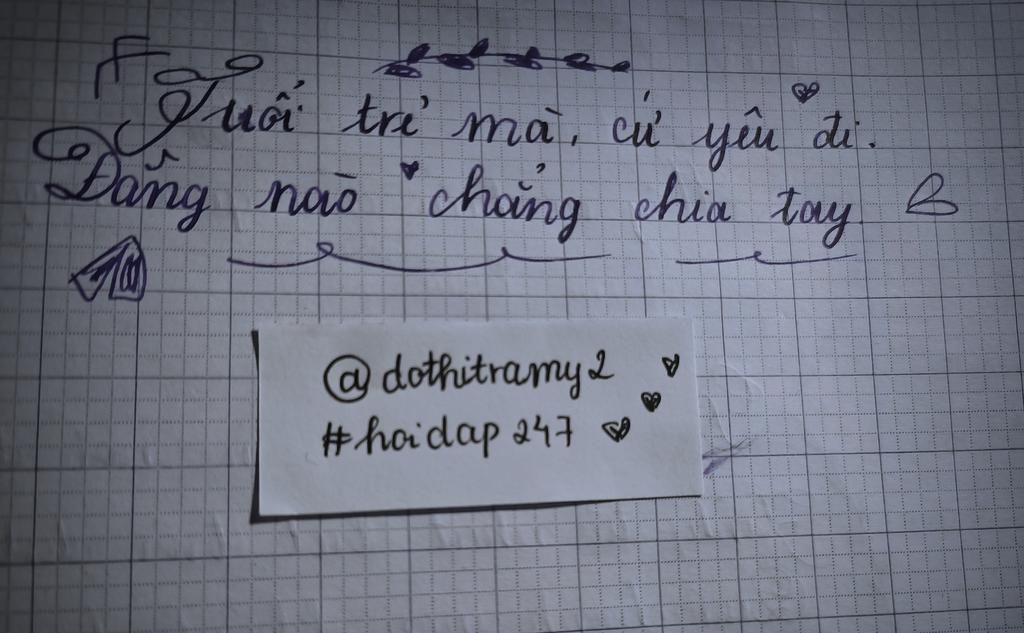 Tuổi trẻ mà, cứ yêu đi.
Đằng nào chẳng chia tay
@dothitramy2
#hoidap 247